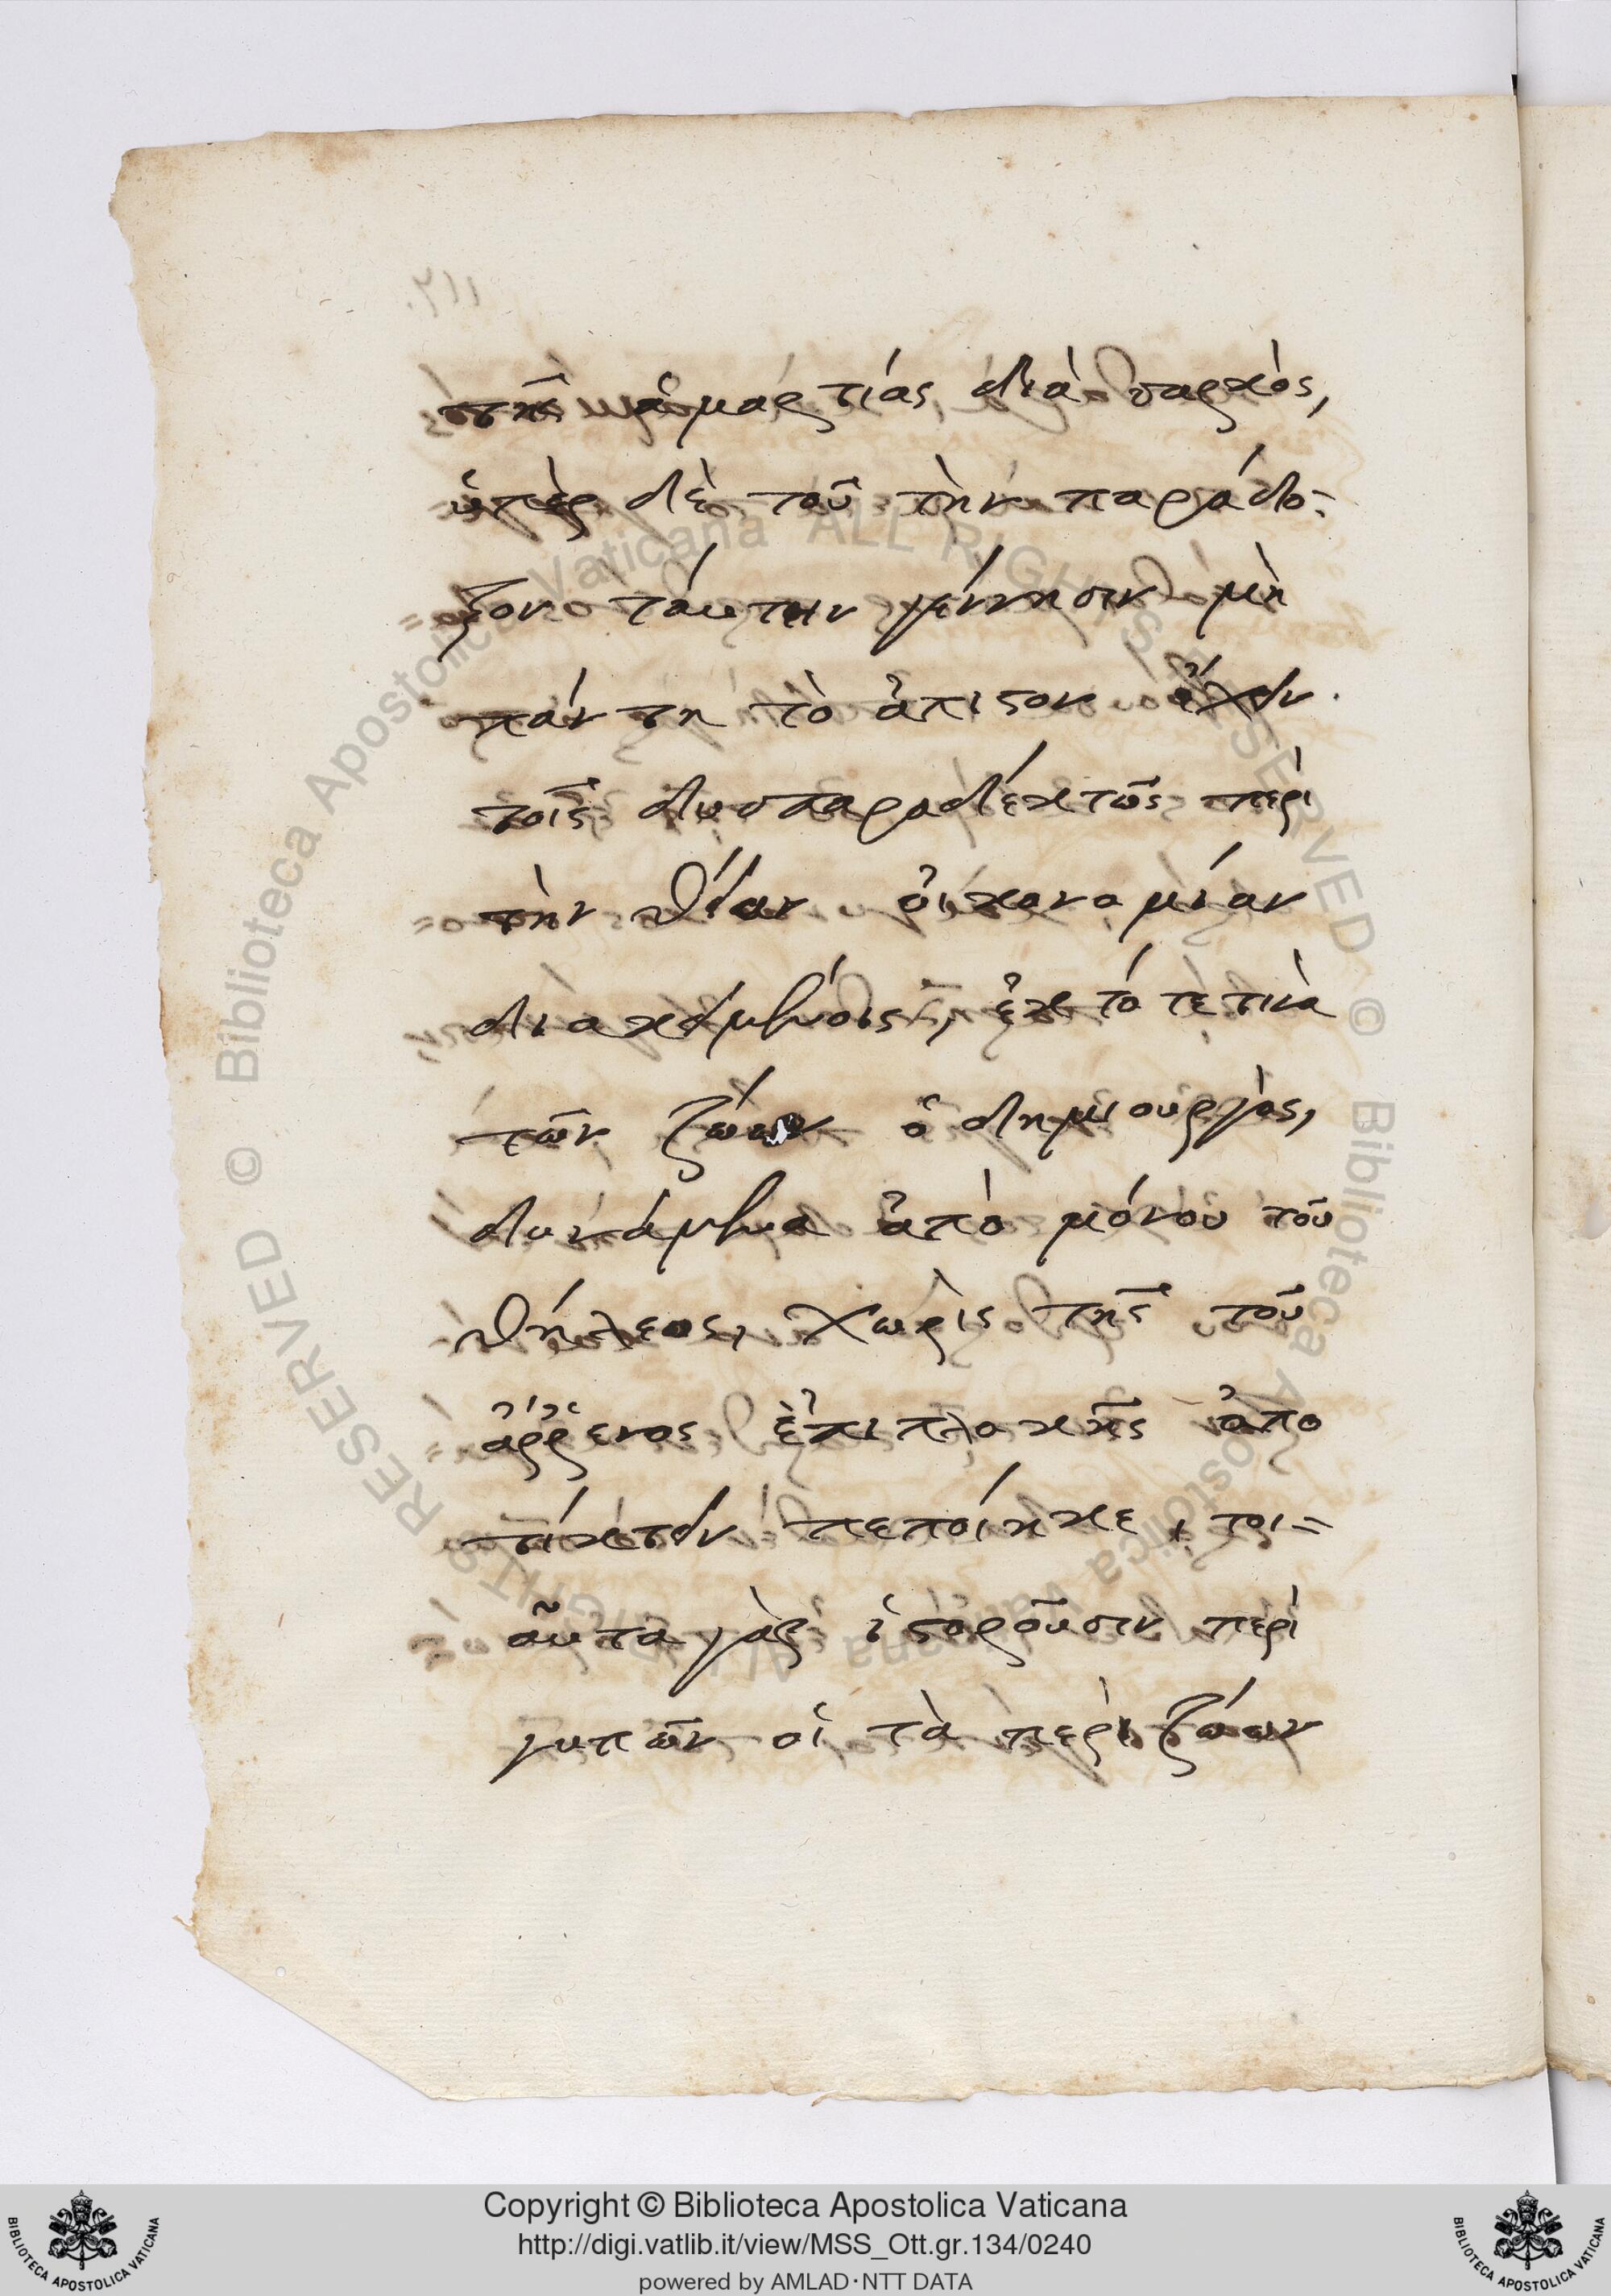 τῆς ἁμαρτίας διὰ σαρκὸς,
ὑπὲρ δὲ τοῦ τὴν παράδο=
ξον ταύτην γέννησιν μὴ
πάντη τὸ ἄπιστον ἔχειν
τοῖς δυσπαραδέκτως περὶ
τὴν θείαν οἰκονομίαν
διακειμένοις, ἔκ τό τε τινὰ
τῶν ζώων ὁ δημιουργὸς,
δυνάμενα ἀπὸ μόνου τοῦ
θήλεος, χωρὶς τῆς τοῦ
ἄῤῥενος ἐπιπλοκῆς ἀπο
τίκτειν πεποίηκε, τοι=
αῦτα γὰρ ἱστοροῦσιν περὶ
γυπῶν οἱ τὰ περὶ ζώων
Copyright © Biblioteca Apostolica Vaticana
http://digi.vatlib.it/view/MSS_Ott.gr.134/0240
powered by AMLAD·NTT DATA
BIBLIOTECA APOSTOLICA VATICANA
BIBLIOTECA APOSTOLICA VATICANA
© Biblioteca Apostolica Vaticana ALL RIGHTS RESERVED © Biblioteca Apostolica Vaticana ALL RIGHTS RESERVED